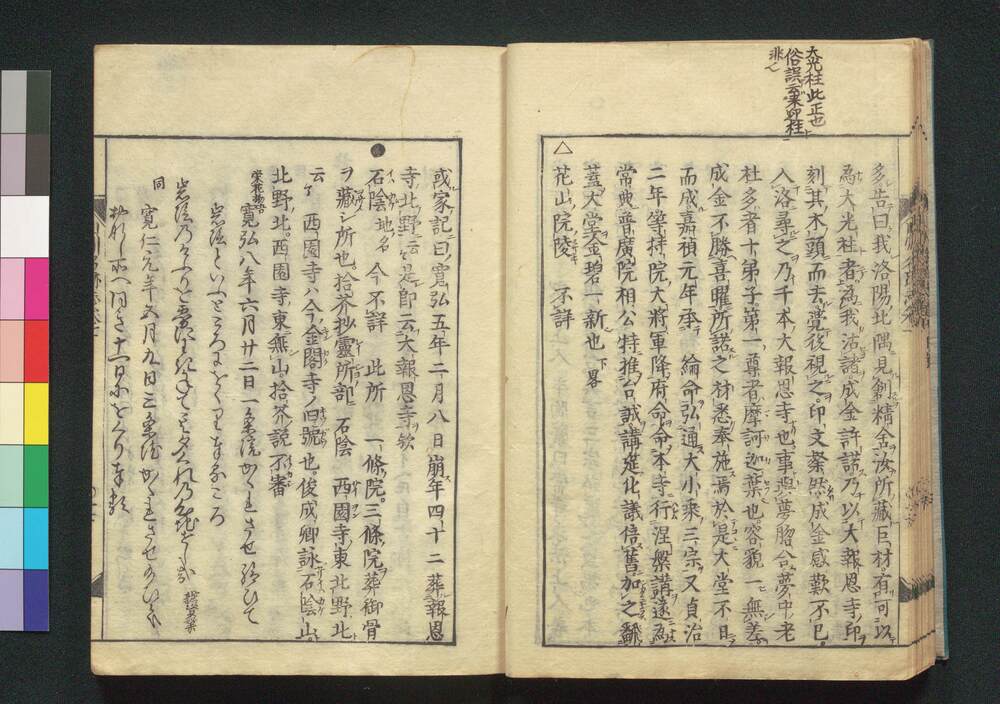 大光柱此正也
俗誤云棗卯柱
非也
多告曰我洛陽北隅見創精舍汝所藏巨材有可以
為大光柱者為我沽諸成金許諾乃以大報恩寺印
刻其木頭而去覺後視之印文粲然成金感歎不已
入洛尋之乃千本大報恩寺也事與夢脗合夢中老
杜多者十弟子第一尊者摩訶迦葉也容貌一無差
成金不勝喜曜所諾之材悉奉施焉於是大堂不日
而成嘉禎元年奉綸命弘通大小乘三宗又貞治
二年等持院大將軍降府命命本寺行涅槃講遠為
常典普廣院相公特推公誠講莚化議倍舊加之黼
蓋大堂金碧一新也下畧
△
花山院陵 不詳
或家記曰寬弘五年二月八日崩年四十二葬報恩
寺北野云云是即云大報恩寺欤
●
石陰地名 今不詳 此所 一條院三條院葬御骨
ヲ藏シ所也拾芥抄靈所部 石陰 西園寺東北野北
云々 西園寺ハ今金閣寺ノ旧號也俊成卿詠石陰山
北野北西園寺東無山拾芥說不審
栄花物語 寬弘八年六月廿二日一条院かくれさせ給ひて
岩陰といふところに
同 寬仁元年五月九日三条院かくれさせ